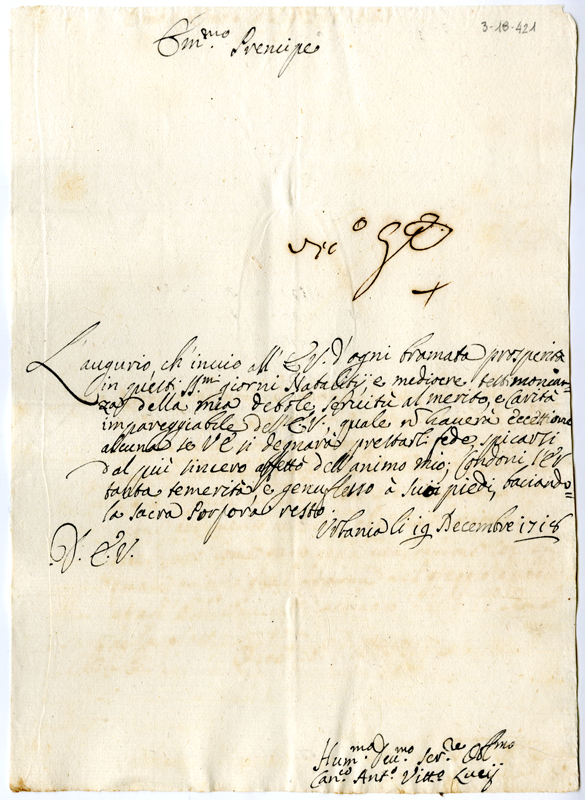 3-18-421
Em.mo Prencipe
L'augurio, ch'invio all'E.V. d'ogni bramata prosperità
in questi SS.mi giorni Natalitij è mediocre testimonian=
za della mia debole servitù al merito, e carità
impareggiabile dell'E.V., quale n̄ haverà eccettione
alcuna se V.E. si degnarà prestarli fede, spicarsi
dal più sincero affetto dell'animo mio; Condoni l'E.V.
tanta temerità, e genuflesso à suoi piedi, baciando=
la sacra Porpora resto.
Urbania li 19 Decembre 1718
D. E.V.
Hum.ma Dev.mo Ser.re Obl.mo
Can.co Ant.o Vitt.o Lucij